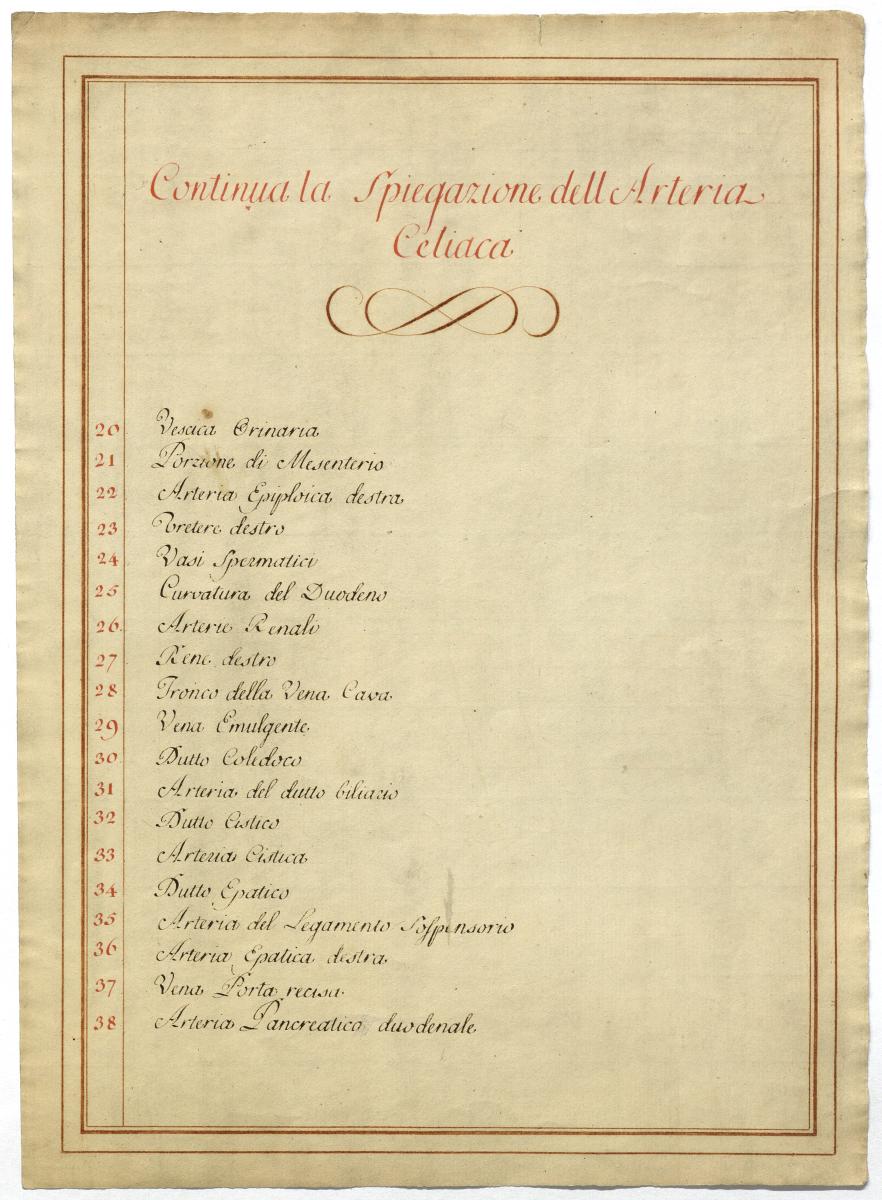 Continua la Spiegazione dell Arteria
Celiaca
20 Vescica Orinaria
21 Porzione di Mesenterio
22 Arteria Epiploica destra
23 Vretere destro
24 Vasi Spermatici
25 Curvatura del Duodeno
26 Arterie Renali
27 Rene destro
28 Tronco della Vena Cava
29 Vena Emulgente
30 Dutto Coledoco
31 Arteria del dutto biliario
32 Dutto Cistico
33 Arteria Cistica
34 Dutto Epatico
35 Arteria del Legamento Sospensorio
36 Arteria Epatica destra
37 Vena Porta recisa
38 Arteria Pancreatico duodenale